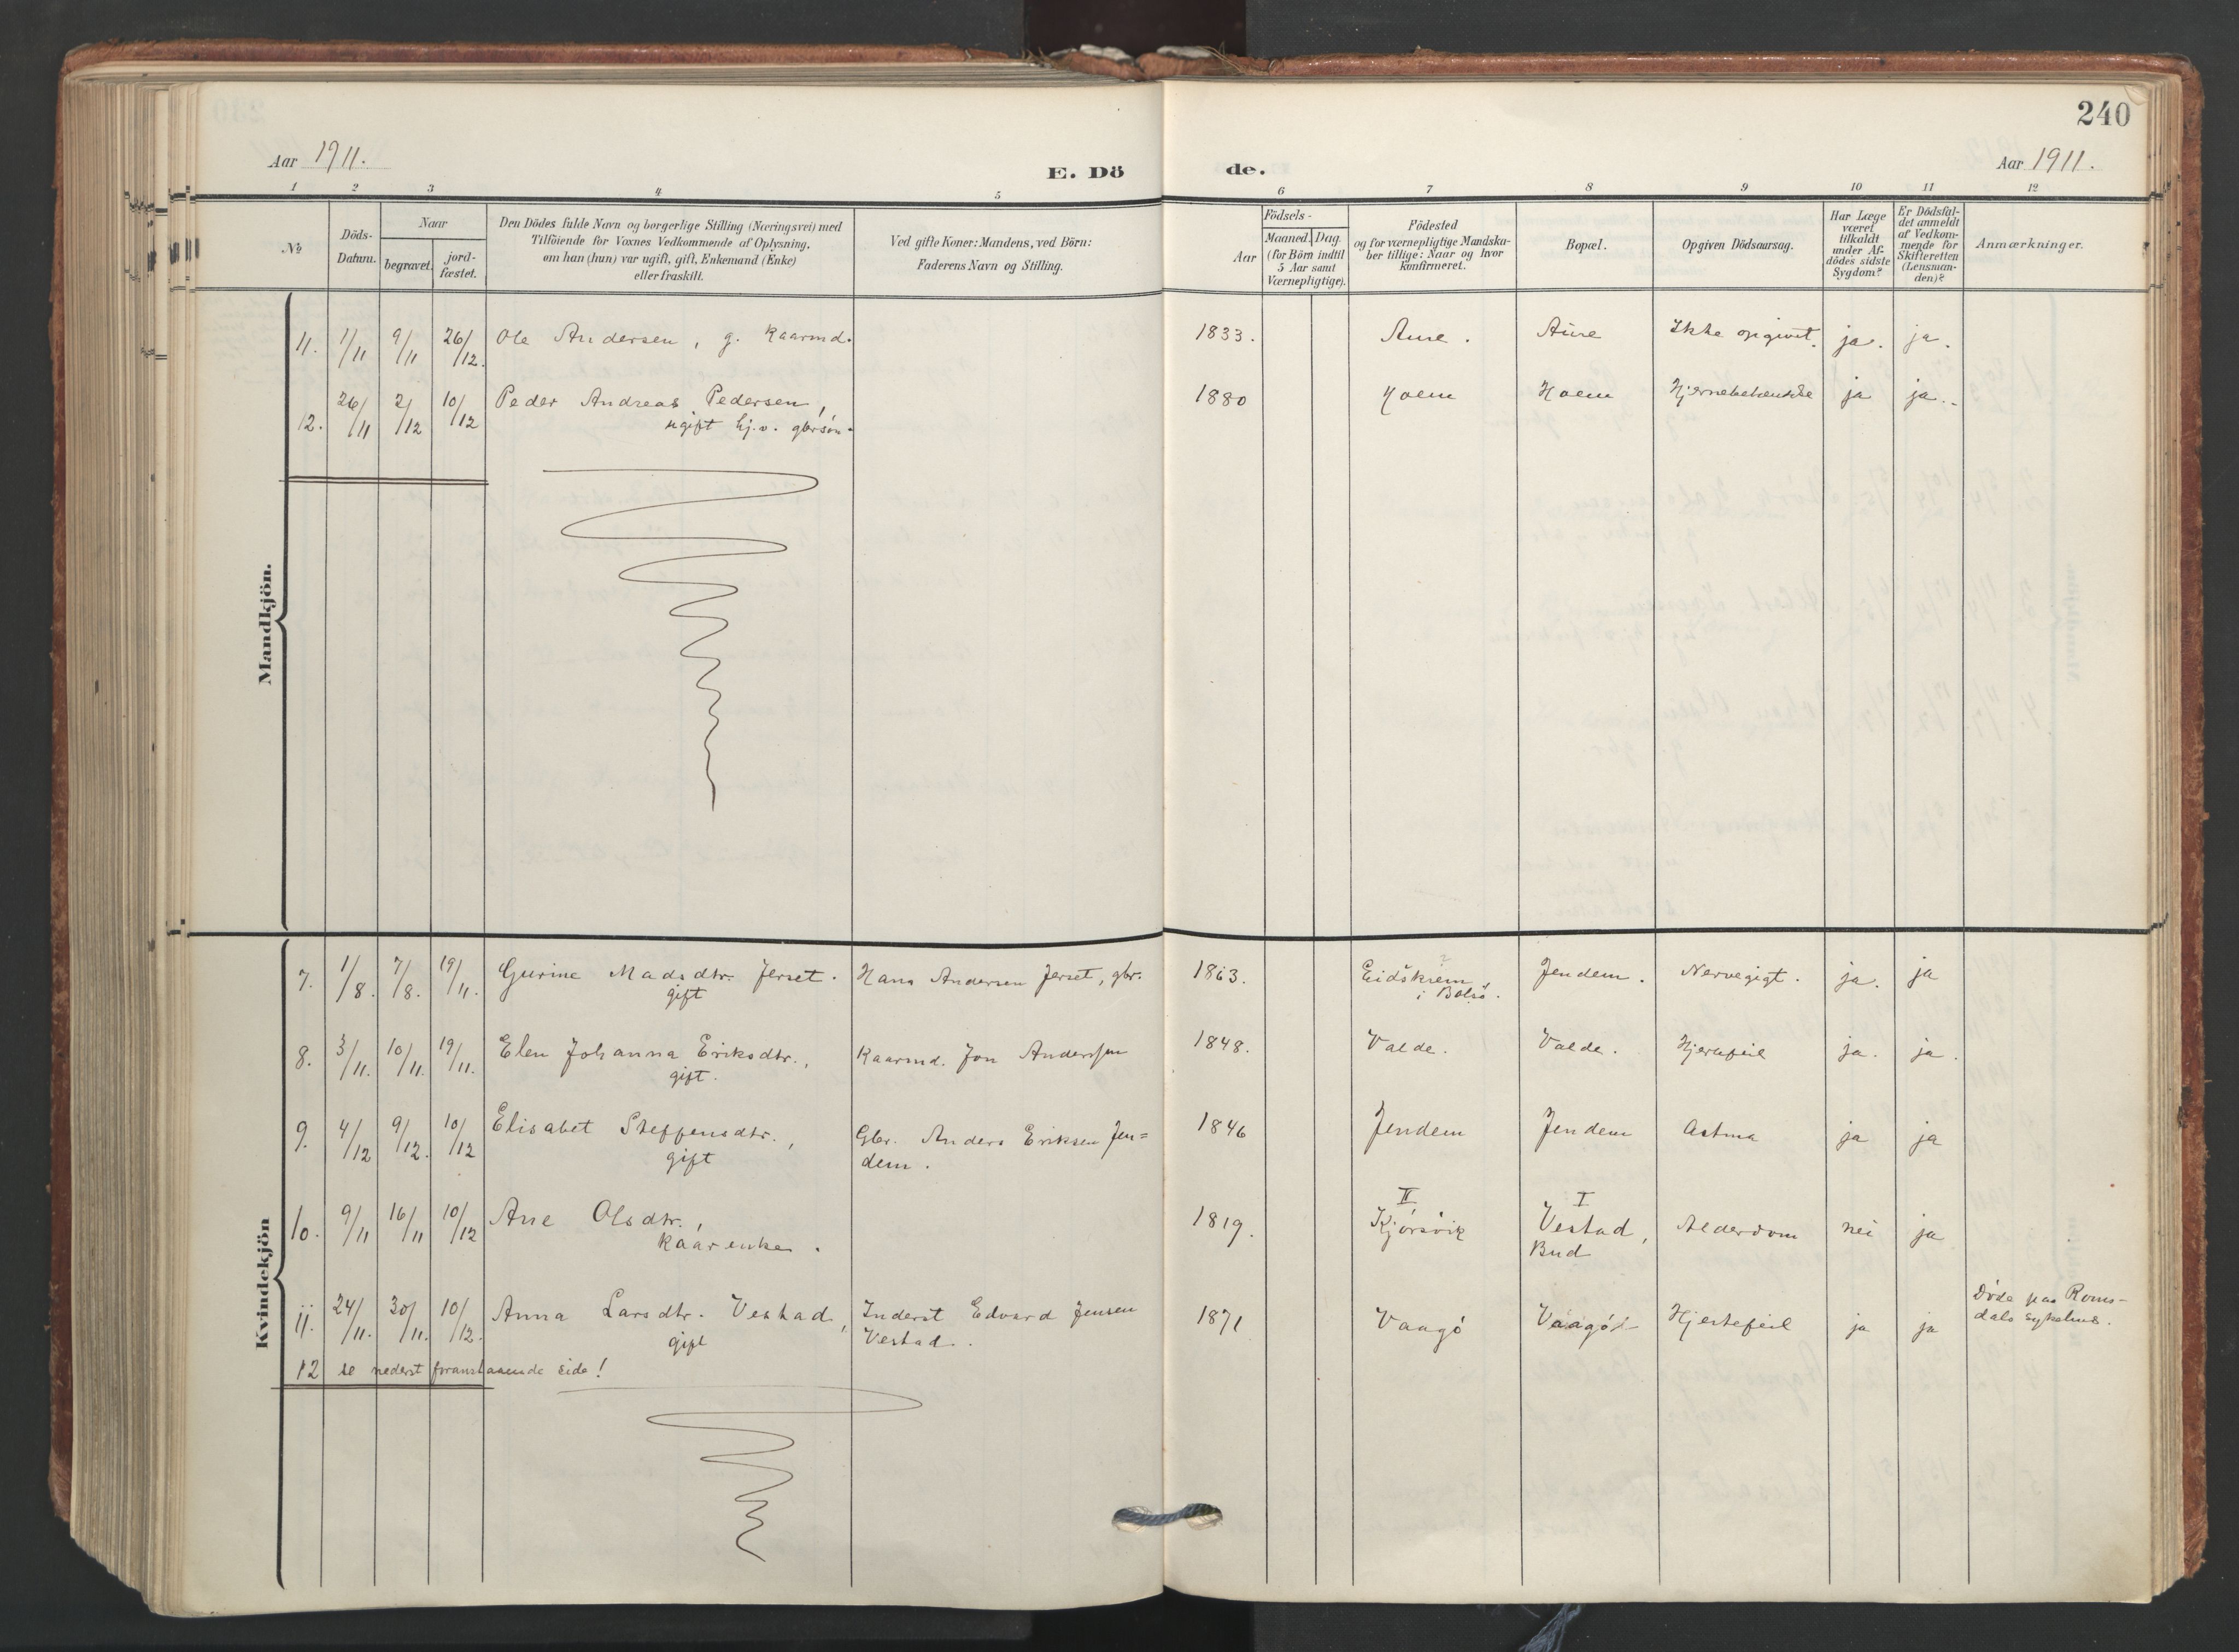 240
Aar 1911.
E. Dö de.
Aar 1911.
1 2 3 4 5 6 7 8 9 10 11 12
No
Döds-
Datum.
Naar
begravet.
jord-
fæstet.
Den Dödes fulde Navn og borgerlige Stilling (Næringsvei) med
Tilföiende for Voxnes Vedkommende af Oplysning,
om han (hun) var ugift, gift, Enkemand (Enke)
eller fraskilt.
Ved gifte Koner: Mandens, ved Börn:
Faderens Navn og Stilling.
Födsels-
Aar
Maaned. Dag.
(for Börn indtil
5 Aar samt
Værnepligtige).
Födested
og for værnepligtige Mandska-
ber tillige: Naar og hvor
konfirmeret.
Bopæl.
Opgiven Dödsaarsag.
Har Læge
været
tilkaldt
under Af-
dödes sidste
Sygdom?
Er Dödsfal-
det anmeldt
af Vedkom-
mende for
Skifteretten
(Lensman-
den)?
Anmærkninger.
Mandkjön.
11. 1/11 9/11 26/12. Ole Andersen, g. Kaarmd. 1833. Aure. Aure Ikke opgivet. ja. ja.
12. 26/11 2/12 10/12 Peder Andreas Pedersen, 1880 Hoem Hoem ja ja.
ugift hj.v. gbr.sön.
Kvindekjön
7. 1/8. 7/8. 19/11. Gurine Madsdtr. Jerset. Hans Andersen Jerset, gbr. 1863. Eidskrem Jendem. Nervegigt. ja. ja
gift i Bolsö.
8. 3/11. 10/11. 19/11. Elen Johanna Eriksdtr., Kaarmd. Jon Anderssen 1848. Valde. Valde. Hjertefeil ja. ja.
gift.
9. 4/12 9/12. 10/12 Elisabet Steffensdtr., Gbr. Anders Eriksen Jen= 1846 Jendem Jendem Astma ja ja
gift dem.
II I
10. 9/11 16/11 10/12 Ane Olsdtr., 1819. Kjörsvik Vestad, Alderdom nei ja
Kaarenke. Bud
11. 24/11. 30/11. 10/12. Anna Larsdtr. Vestad, Inderst Edvard Jensen 1871 Vaagö Vaagö Hjertefeil ja ja Döde paa Roms-
gift Vestad. dals sykehus.
12 se nederst foranstaaende side!